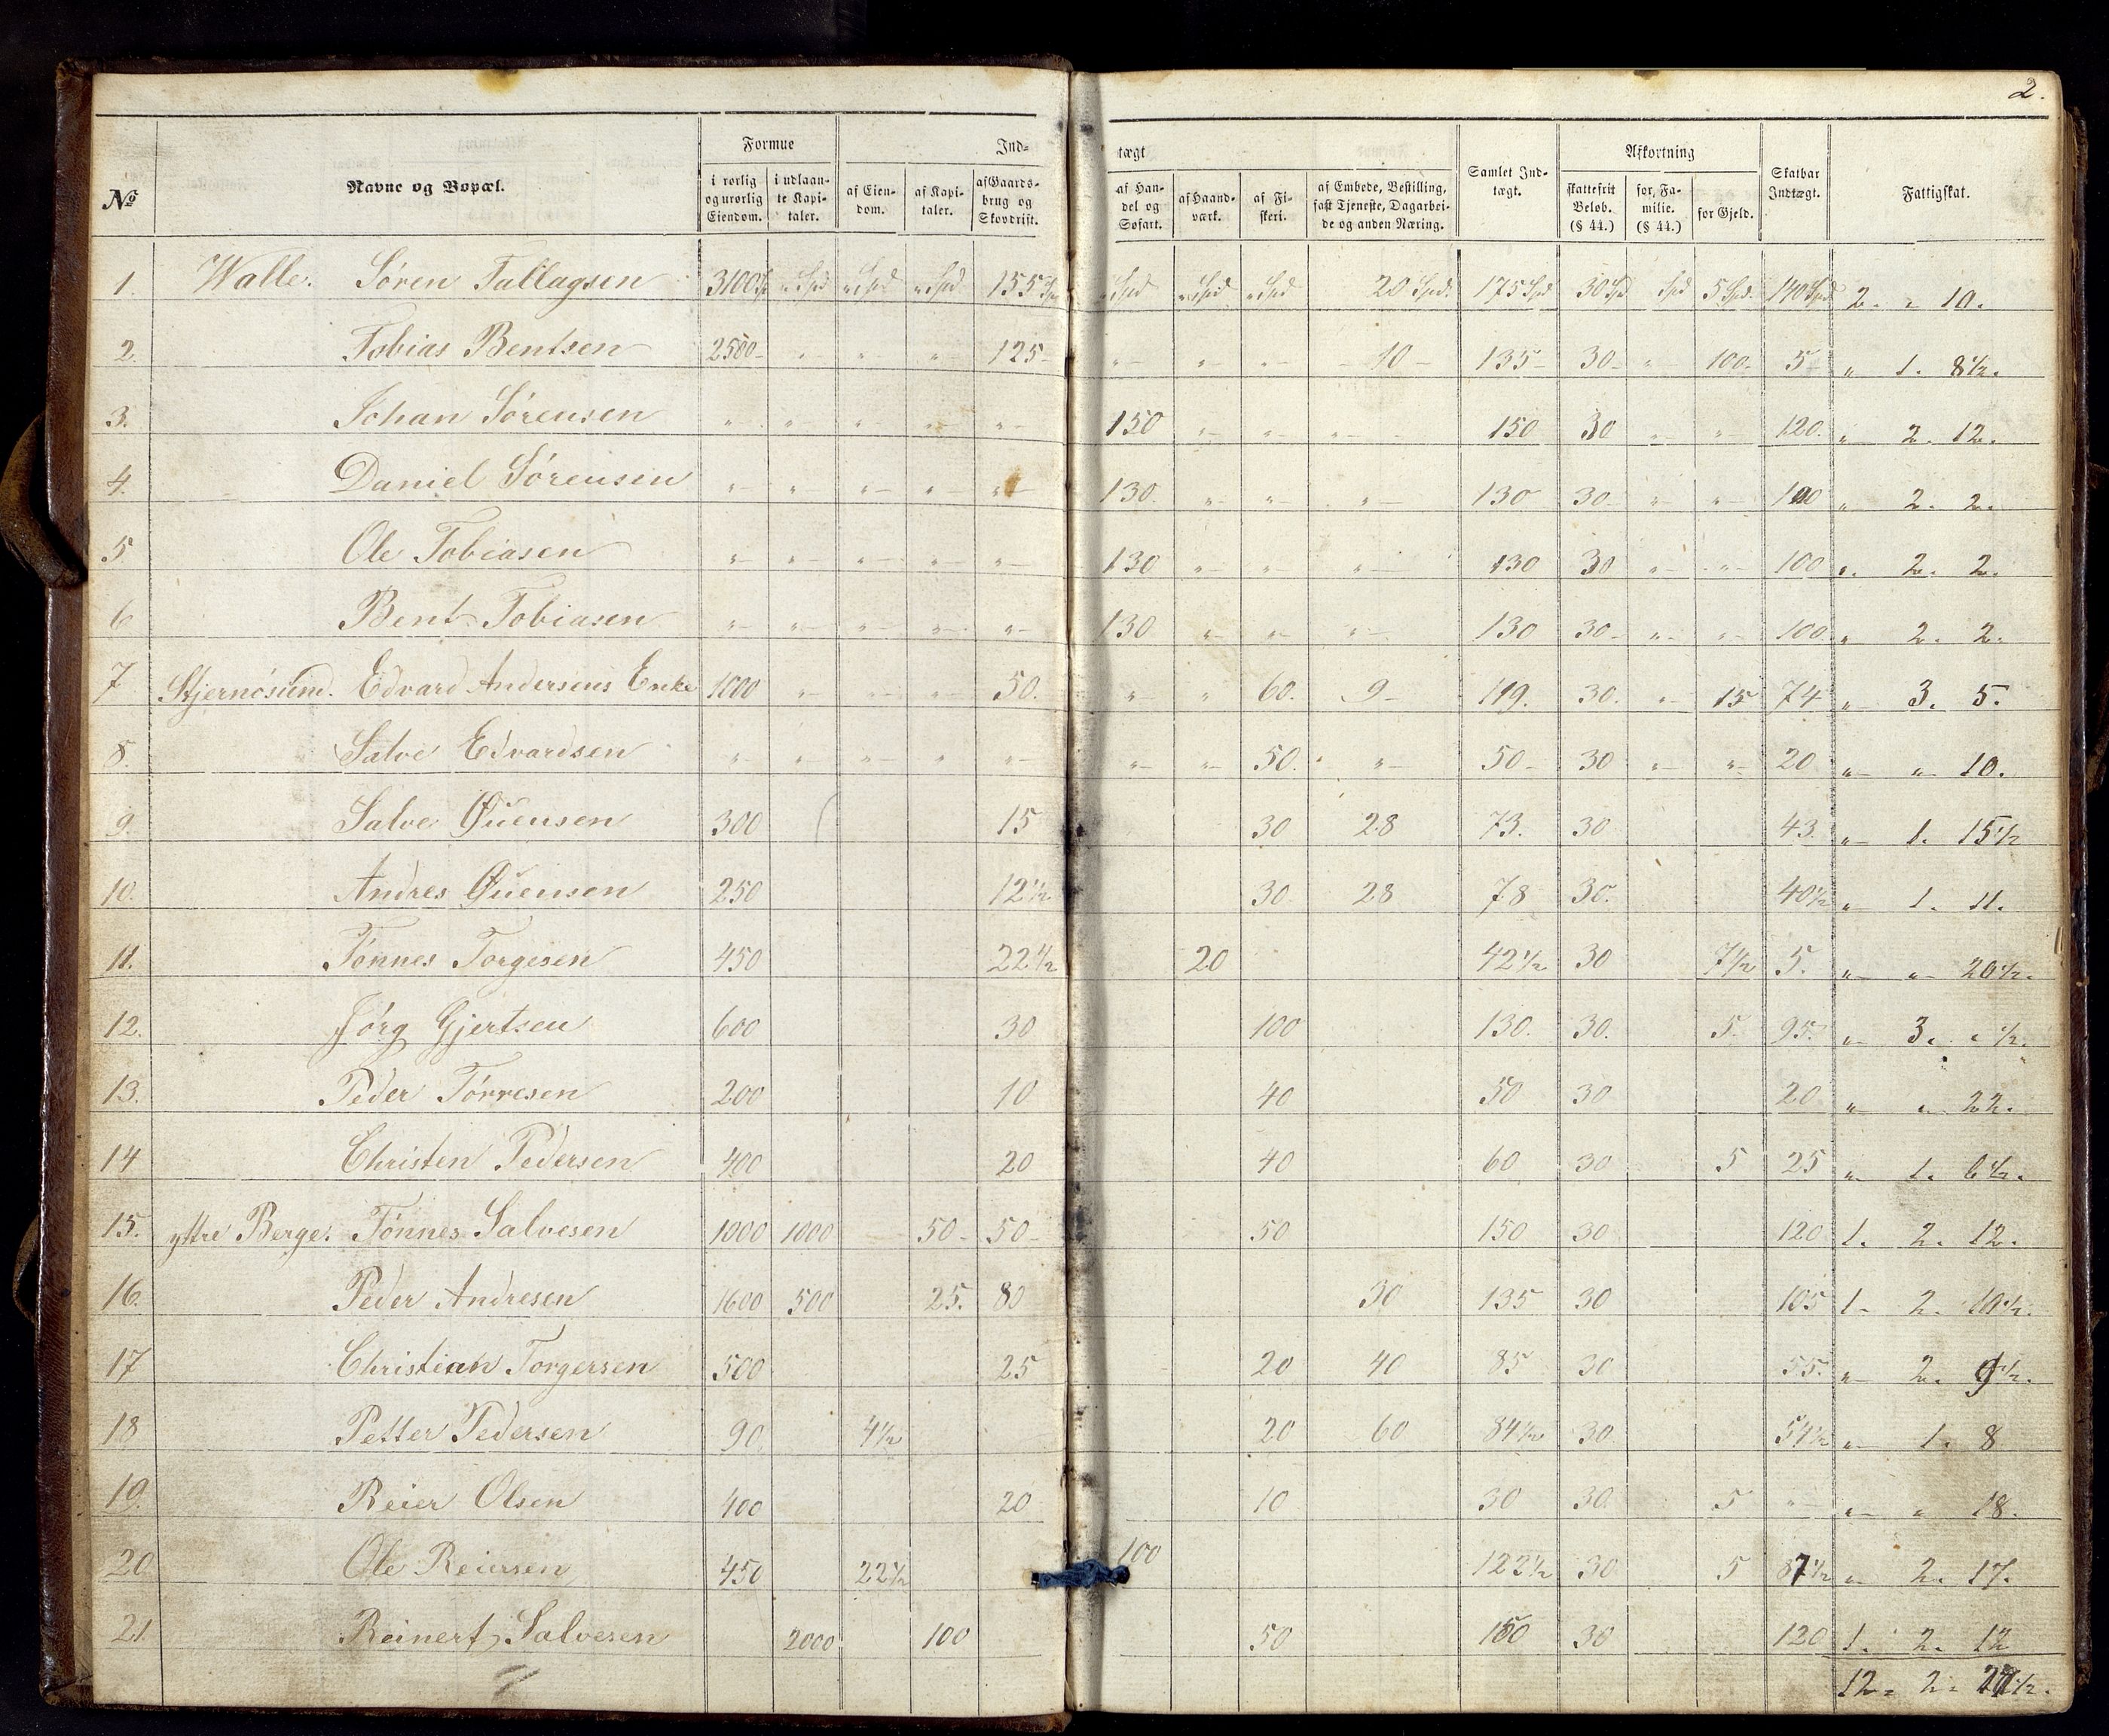 2.
Formue Ind- tægt Afkortning
№ Navne og Bopæl. i rørlig og urørlig Eiendom. i udlaan- te Kapi- taler. af Eien- dom. af Kapi- taler. af Gaards- brug og Skovdrift. af Han- del og Søfart. af Haand- værk. af Fi- skeri. af Embede, Bestilling, fast Tjeneste, Dagarbei- de og anden Næring. Samlet Ind- tægt. skattefrit Beløb. (§ 44.) for Fa- milie. (§ 44.) for Gjeld. Skatbar Indtægt. Fattigskat.
1. Walle. Søren Tallagsen 3100 Spd " Spd " Spd " Spd 155 Spd " Spd " Spd " Spd 20 Spd. 175 Spd 30 Spd Spd 5 Spd. 140 Spd 2. " 10.
2. Tobias Bentsen 2500 - " - " - " 125 - " - " - " - 10 - 135 - 30 - " - 100. 5 - " 1. 8½.
3. Johan Sørensen " - " - " - " - " - 150 " - " - " - 150 30 " - " - 120. " 2. 12.
4. Daniel Sørensen " - " " - " - " 130. " - " - " - 130 30. " - " - 100 " 2. 2.
5 Ole Tobiasen " - " " - " - " - 130 " - " - " - 130 30 " - " - 100 " 2. 2.
6 Bent Tobiasen " - " - " - " - " - 130 " - " - " - 130 30 - " - " - 100. " 2. 2.
7 Stjernøsund. Edvard Andersens Enke 1000 " - " - " - 50. " - " 60. 9 - 119. 30. " - 15 74 " 3. 5.
8. Salve Edvardsen " - " " - " " - " - " - 50. " - 50 - 30 " - " - 20 " - " - 10.
9. Salve Ouensen 300 15 30 28 73. 30 43. " - 1. 15½
10. Andres Ouensen 250 12½ 30. 28 78 30. 40½ " - 1. 11.
11. Tønnes Torgesen 450 22½ 20 42½ 30 7½ 5. " - " - 20½.
12. Jørg Gjertsen 600 30 100 130. 30. 5. 95. " - 3. " ½.
13. Peder Tørresen 200 10 40 50 30 20 " - " 22.
14 Christen Pedersen 400 20 40 60 30 5 25 " - 1. 6½.
15. yttre Berge. Tønnes Salvesen 1000 1000 50 - 50 - 50 150 30 120 1. 2. 12.
16. Peder Andresen 1600 500 25. 80 30 135 30 105 1 - 2. 10½.
17 Christian Torgersen 500 25 20 40 85 30 55. " - 2. 9½.
18 Petter Pedersen 90 4½ 20 60 84½ 30 54½ " - 1. 8
19. Reier Olsen 400 20 10 30 30. 5 " - " - " 18.
20 Ole Reiersen 450 22½ 100 122½ 30 5 87½ " - 2. 17.
21. Reinert Salvesen 2000 100 50 150 30 120 1. 2. 12
12 = 2 =